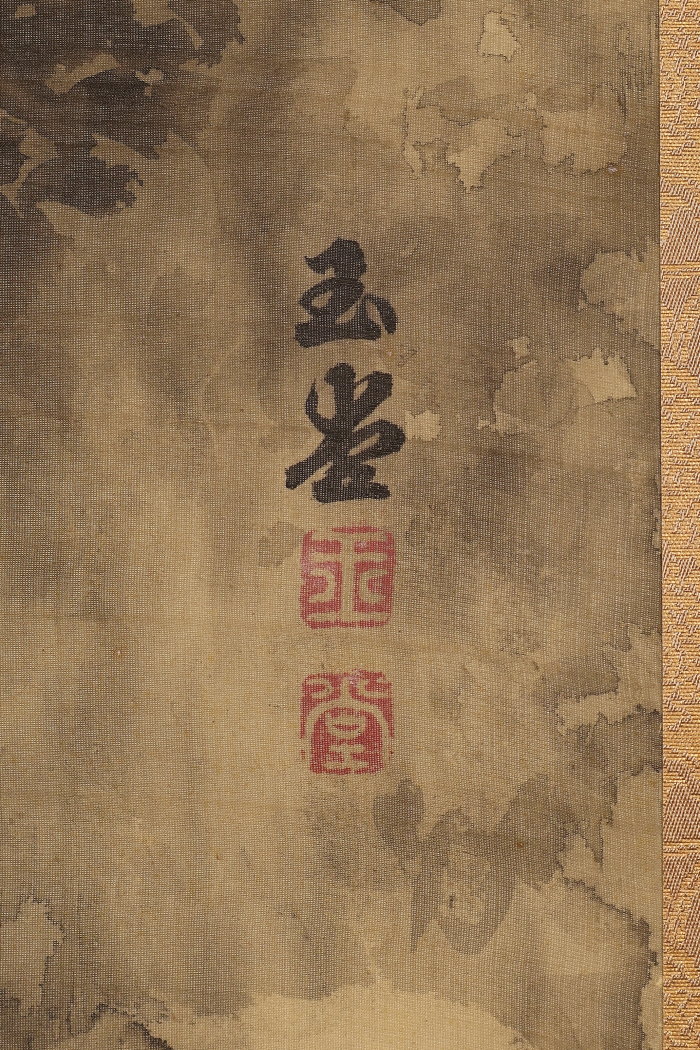 玉堂
玉
堂